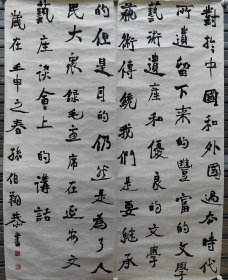 對於中國和外國過去時代
所遺留下來的豐富的文學
藝術遺產和優良的文學
藝術傳統我們是要繼承
的但是目的仍然是為了人
民大衆錄毛主席在延安文
藝座談會上的講話
歲在壬申之春孫伯翔恭書